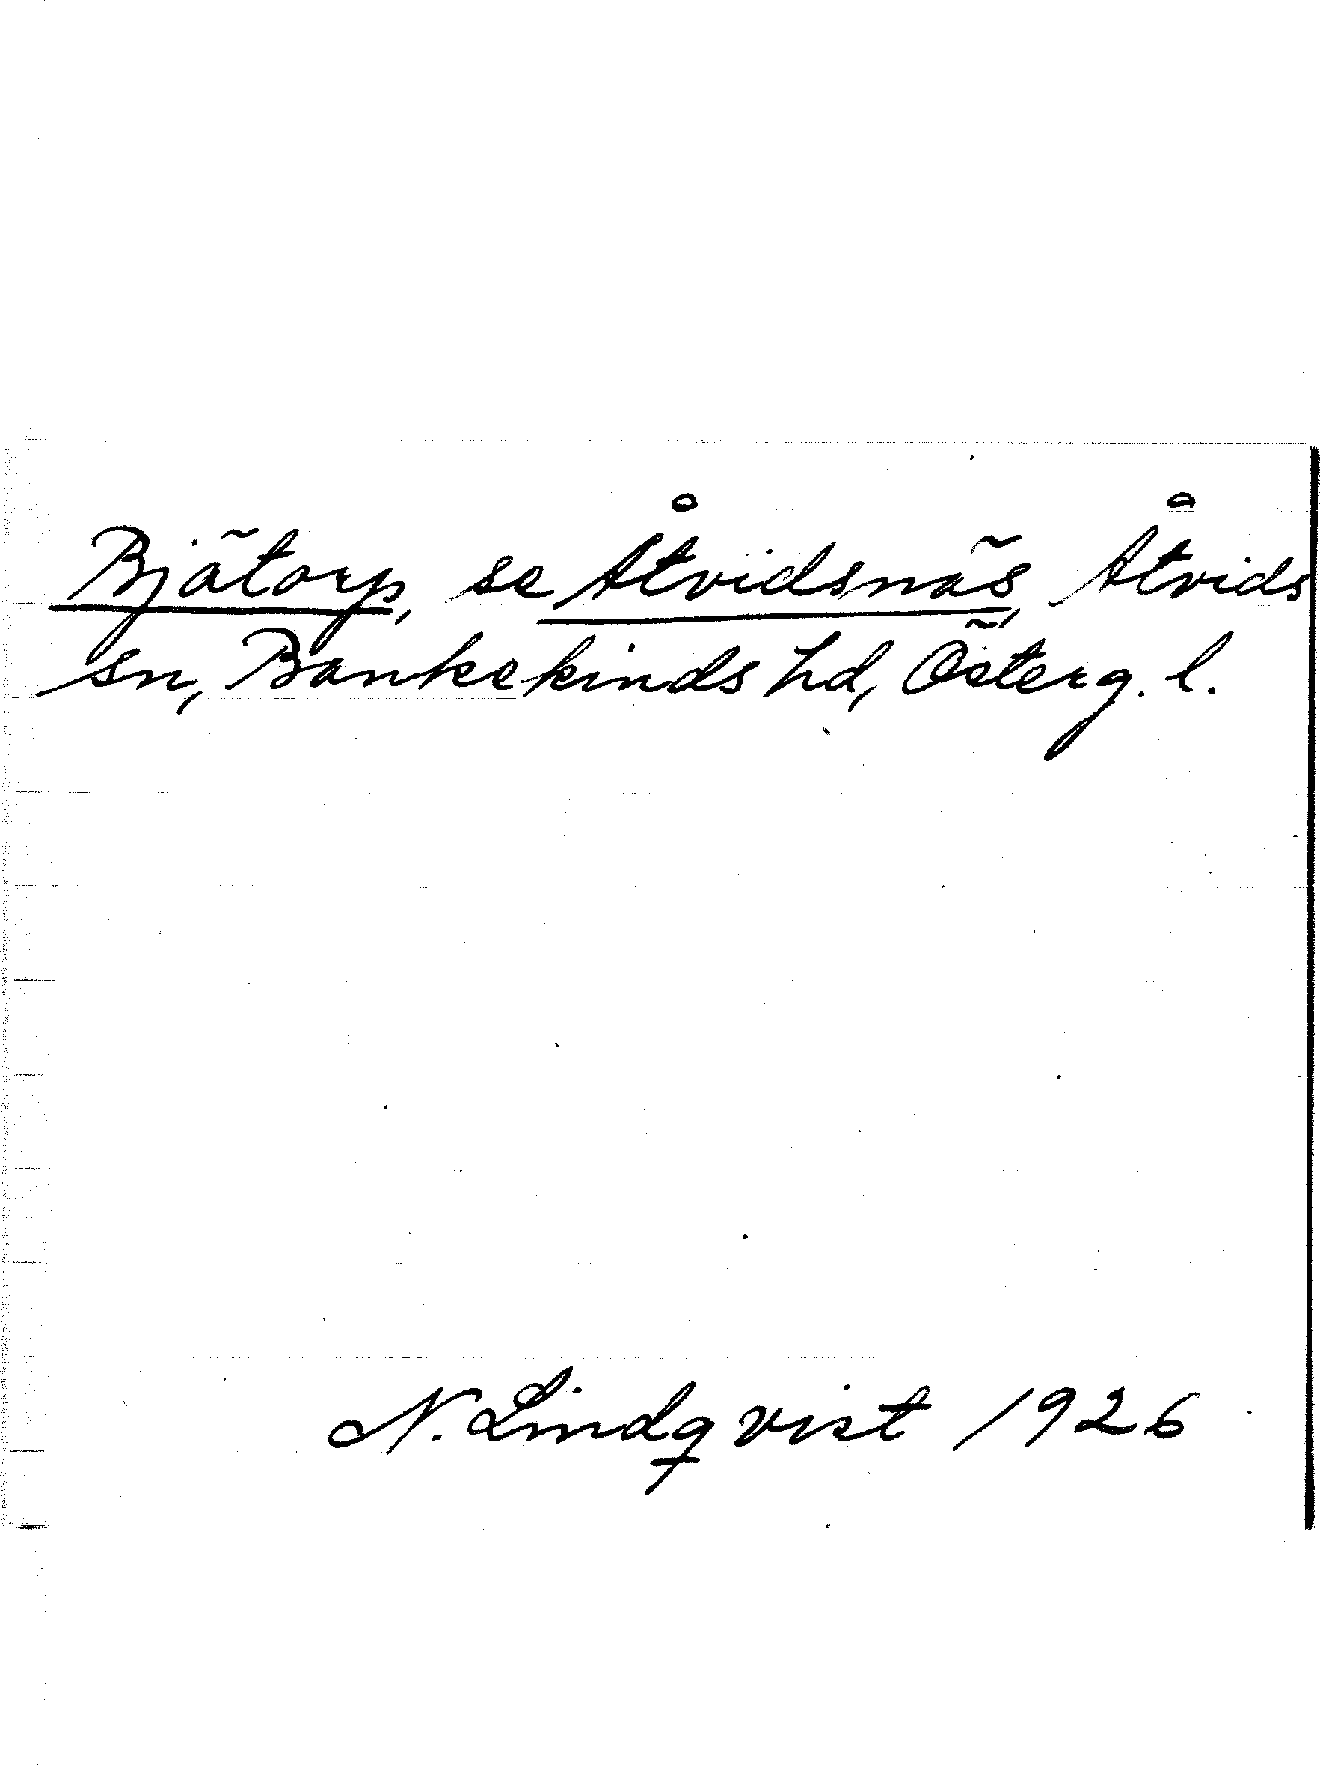 Bjätorp, se Åtvidsnäs, Åtvids
sn, Bankekinds hd, Österg. l.
N. Lindqvist 1926